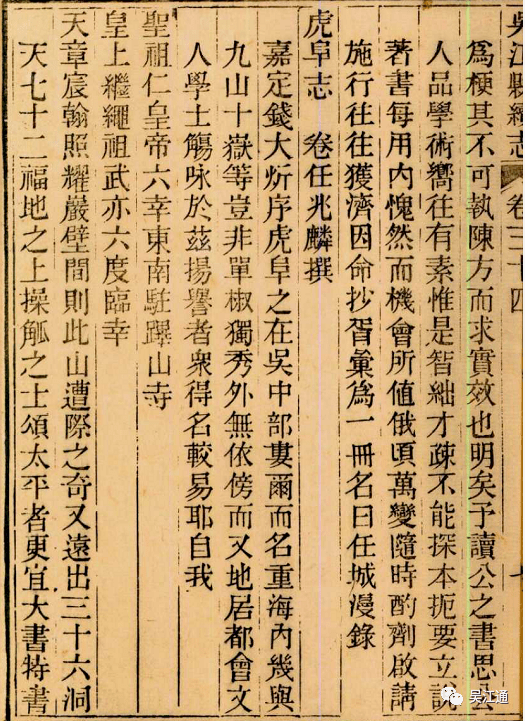 吳江縣續志 卷三十四
爲梗其不可執陳方而求實效也明矣予讀公之書思公
人品學術嚮往有素惟是智絀才疎不能探本扼要立說
著書每用內愧然而機會所值俄頃萬變隨時酌劑啟請
施行往往獲濟因命抄胥彙爲一冊名曰任城漫錄
虎阜志 卷任兆麟撰
嘉定錢大昕序虎阜之在吳中部婁爾而名重海內幾與
九山十嶽等豈非單椒獨秀外無依傍而又地居都會文
人學士觴咏於茲揚譽者衆得名較易耶自我
聖祖仁皇帝六幸東南駐蹕山寺
皇上繼繩祖武亦六度臨幸
天章宸翰照耀巖壁間則此山遭際之奇又遠出三十六洞
天七十二福地之上操觚之士頌太平者更宜大書特書
吴江通